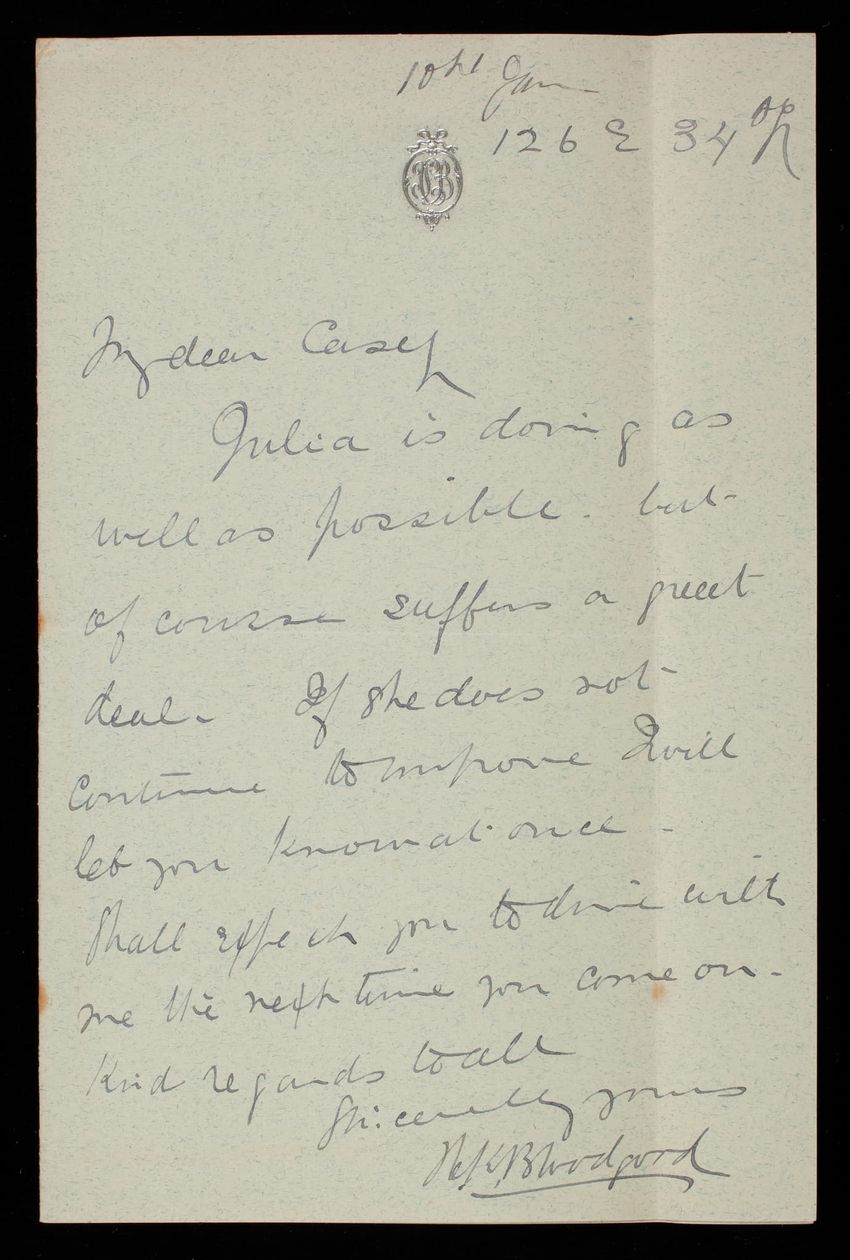 10th Jan
126 E 34 St
My dear Casey
Julia is doing as
well as possible - but
of course suffers a great
deal - If she does not
continue to improve I will
let you know at once -
Shall expect you to dine with
me the next time you come on -
Kind regards to all
Sincerely yours
H. K. Bloodgood